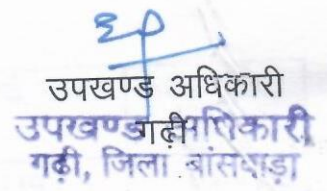 उपखण्ड अधिकारी
गढ़ी
उपखण्ड अधिकारी
गढ़ी, जिला बांसवाड़ा